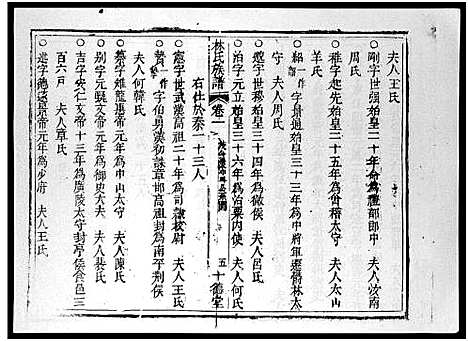 夫人王氏
○剛字世强始皇二十年命為禮部郎中　夫人汝南
周氏
○稚字起先始皇二十五年為會稽太守　夫人太山
羊氏
紹一作　字景過始皇三十三年為中將軍遷欝林太
守　夫人周氏
○選字世穆始皇三十四年為微侯　夫人呂氏
○治字元立始皇三十六年為治粟內使　夫人何氏
右仕於秦一十三人
林氏族譜　卷一　五十　德堂
○憲字世武漢高祖二十年為司隸校尉　夫人王氏
贄一作　字伯勇漢初謙章邯高祖封為南平荆侯
夫人何韓氏
○蔡字雄龍惠帝元年為中山太守　夫人陳氏
○別字元賢文帝元年為御史大夫　夫人裴氏
○吉字英仁文帝十三年為廣陵太守封亭侯食邑三
百六戶　夫人章氏
○進字德遠景帝元年為少府　夫人王氏